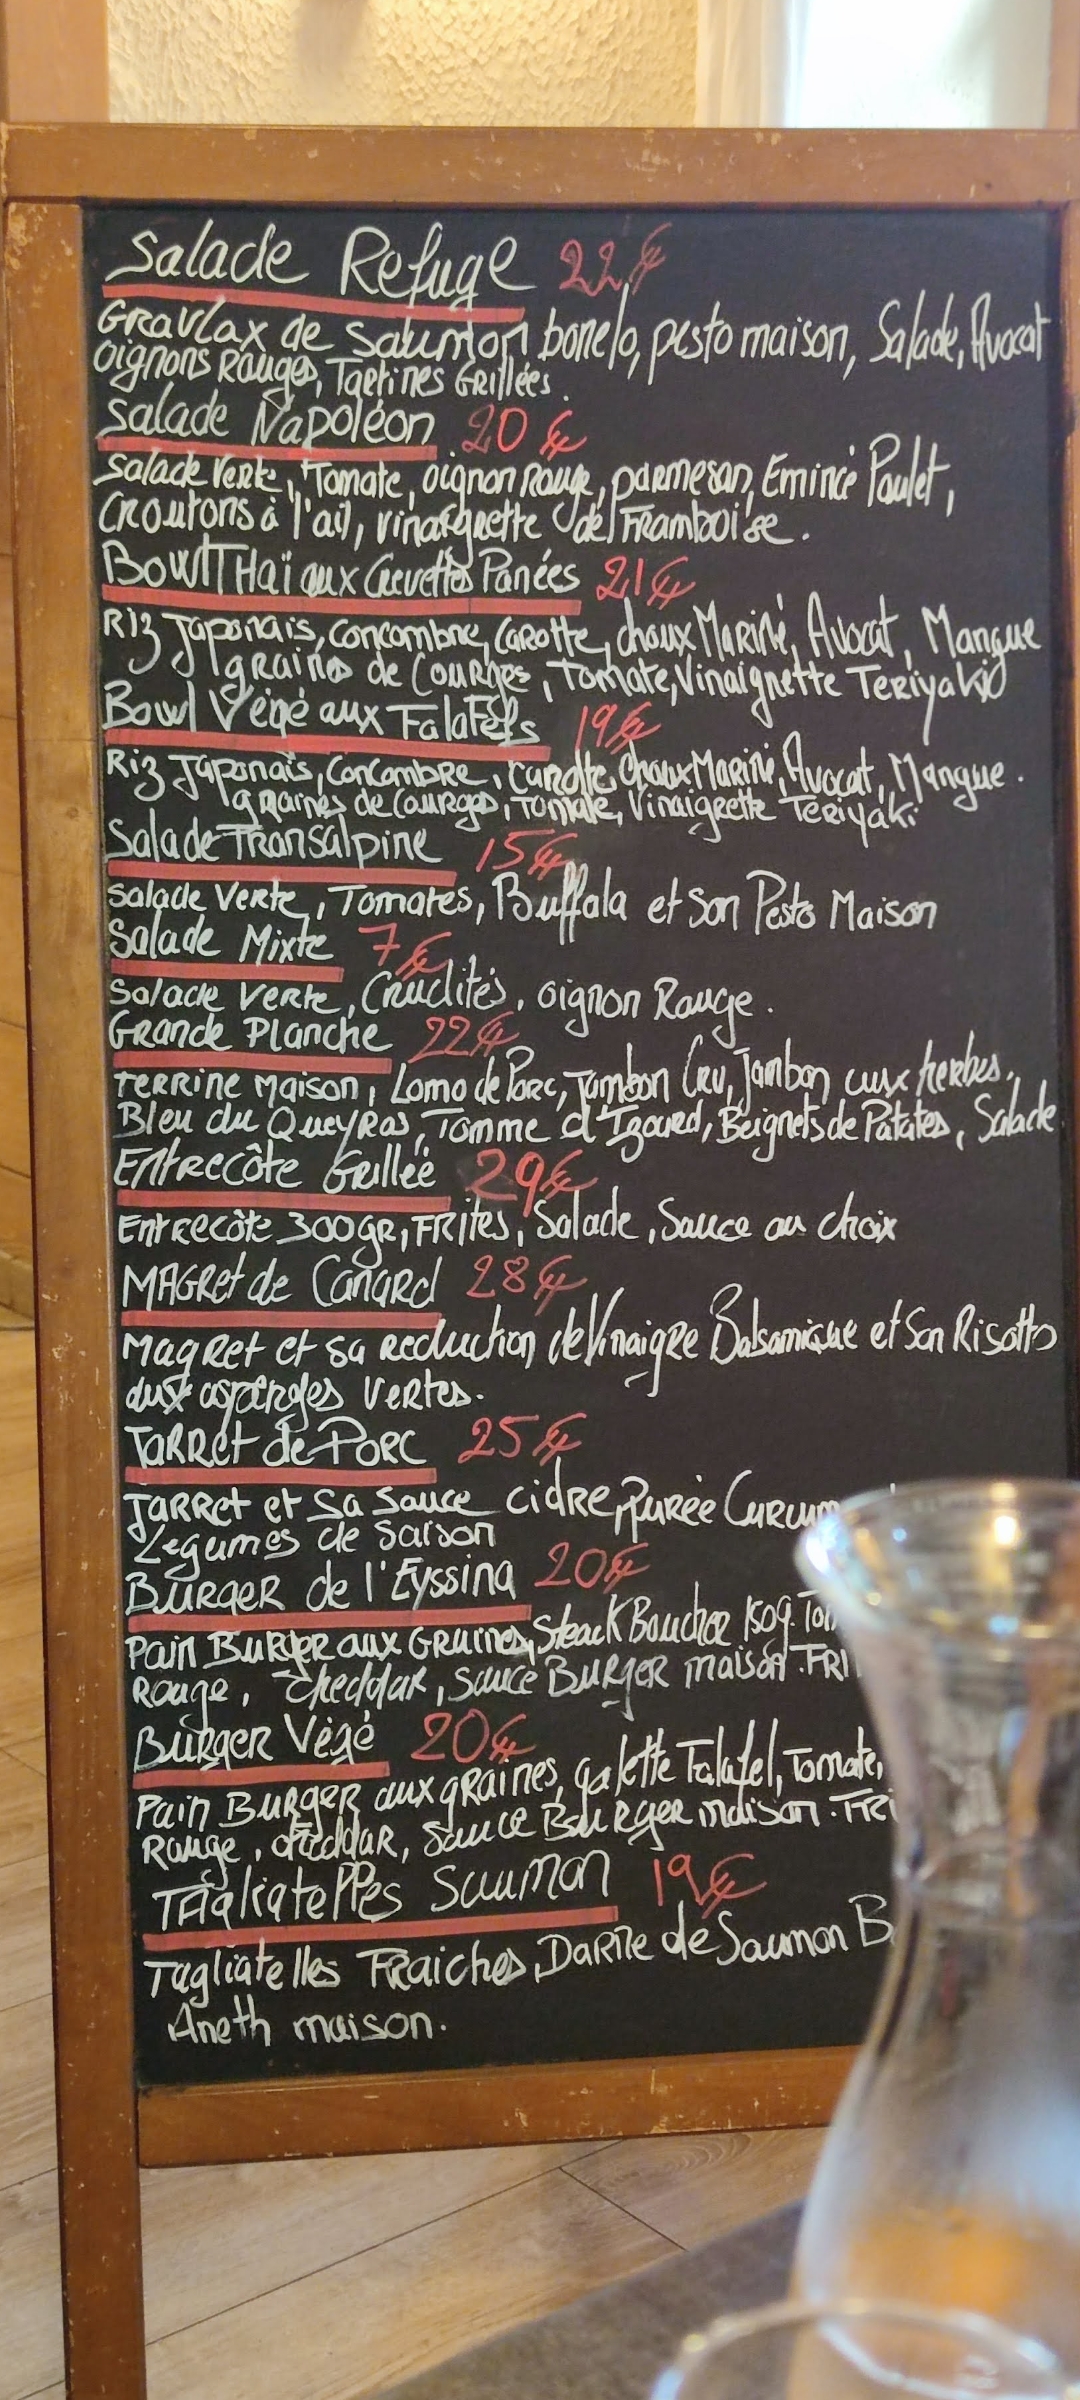 Salade Refuge 22€
Gravlax de Saumon bomelo, pesto maison, Salade, Avocat
oignons Rouges, Tartines Grillées.
Salade Napoléon 20€
Salade Verte, Tomate, oignon rouge, parmesan, Emincé Poulet,
Croutons à l'ail, vinaigrette de Framboise.
Bowl Thaï aux Crevettes Panées 21€
Riz Japonais, Concombre, Carotte, choux Mariné, Avocat, Mangue
graines de Courges, Tomate, Vinaigrette Teriyaki
Bowl Végé aux Falafels 19€
Riz Japonais, Concombre, Carotte, Choux Mariné, Avocat, Mangue.
graines de Courges, Tomate, Vinaigrette Teriyaki
Salade Transalpine 15€
Salade Verte, Tomates, Buffala et Son Pesto Maison
Salade Mixte 7€
Salade Verte, Crudités, oignon Rouge.
Grande Planche 22€
Terrine Maison, Lomo de Porc, Jambon Cru, Jambon aux herbes,
Bleu du Queyras, Tomme d'Izoard, Beignets de Patates, Salade
Entrecôte Grillée 29€
Entrecôte 300gr, Frites, Salade, Sauce au choix
Magret de Canard 28€
Magret et sa reduction de Vinaigre Balsamique et Son Risotto
aux asperges Vertes.
Jarret de Porc 25€
Jarret et Sa Sauce cidre, Purée Curcum
Légumes de Saison
Burger de l'Eyssina 20€
Pain Burger aux Graines, Steack Boucher 150g. Tom
Rouge, Cheddar, Sauce Burger maison. Fri
Burger Végé 20€
Pain Burger aux graines, galette Falafel, Tomate,
Rouge, cheddar, Sauce Bourger maison. Fri
Tagliatelles Saumon 19€
Tagliatelles Fraiches, Darne de Saumon B
Aneth maison.